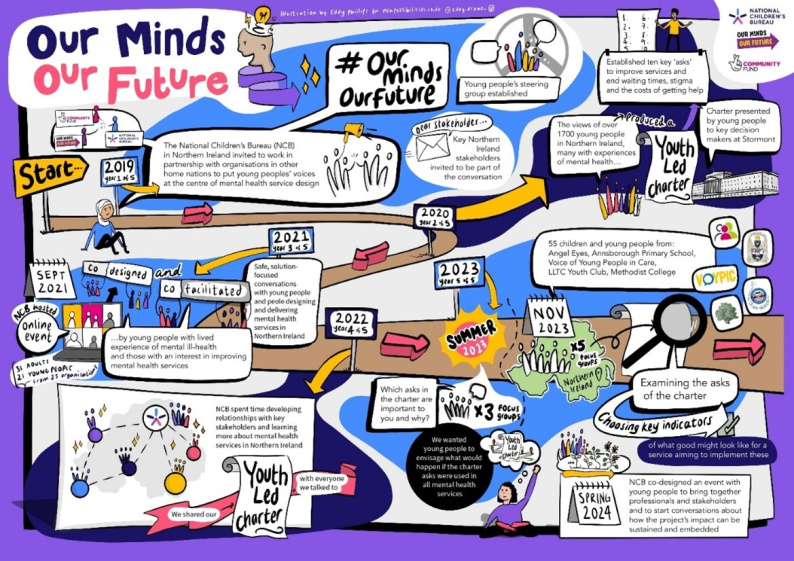 Illustration by Eddy Phillips for
Our Minds
Our Future
#Our
minds
OurFuture
Young people's steering
group established
Established ten key 'asks'
to improve services and
end waiting times, stigma
and the costs of getting help
NATIONAL
CHILDREN'S
BUREAU
OUR MINDS
OUR FUTURE
COMMUNITY
FUND
Start...
2019
year 1 of 5
The National Children's Bureau (NCB)
in Northern Ireland invited to work in
partnership with organisations in other
home nations to put young peoples' voices
at the centre of mental health service design
Dear stakeholder...
Key Northern
Ireland
stakeholders
invited to be part of
the conversation
2020
year 2 of 5
The views of over
1700 young people
in Northern Ireland,
many with experiences
of mental health...
Produced a
Youth
Led
Charter
Charter presented
by young people
to key decision
makers at Stormont
2021
year 3 of 5
SEPT
2021
co designed and
co facilitated
NCB hosted
online
event
31 ADULTS
21 YOUNG PEOPLE
from 25 organisations
...by young people with lived
experience of mental ill-health
and those with an interest in improving
mental health services
Safe, solution-
focused
conversations
with young people
and peole designing
and delivering
mental health
services in
Northern Ireland
2022
year 4 of 5
NCB spent time developing
relationships with key
stakeholders and learning
more about mental health
services in Northern Ireland
We shared our
Youth
Led
Charter
with everyone
we talked to
2023
year 5 of 5
SUMMER
2023
Which asks in
the charter are
important to
you and why?
x3 focus
groups
We wanted
young people to
envisage what would
happen if the charter
asks were used in
all mental health
services
Youth
Led
Charter
55 children and young people from:
Angel Eyes, Annsborough Primary School,
Voice of Young People in Care,
LLTC Youth Club, Methodist College
VOYPIC
NOV
2023
x5
focus
groups
Northern
Ireland
Examining the asks
of the charter
Choosing key indicators
of what good might look like for a
service aiming to implement these
SPRING
2024
NCB co-designed an event with
young people to bring together
professionals and stakeholders
and to start conversations about
how the project's impact can be
sustained and embedded